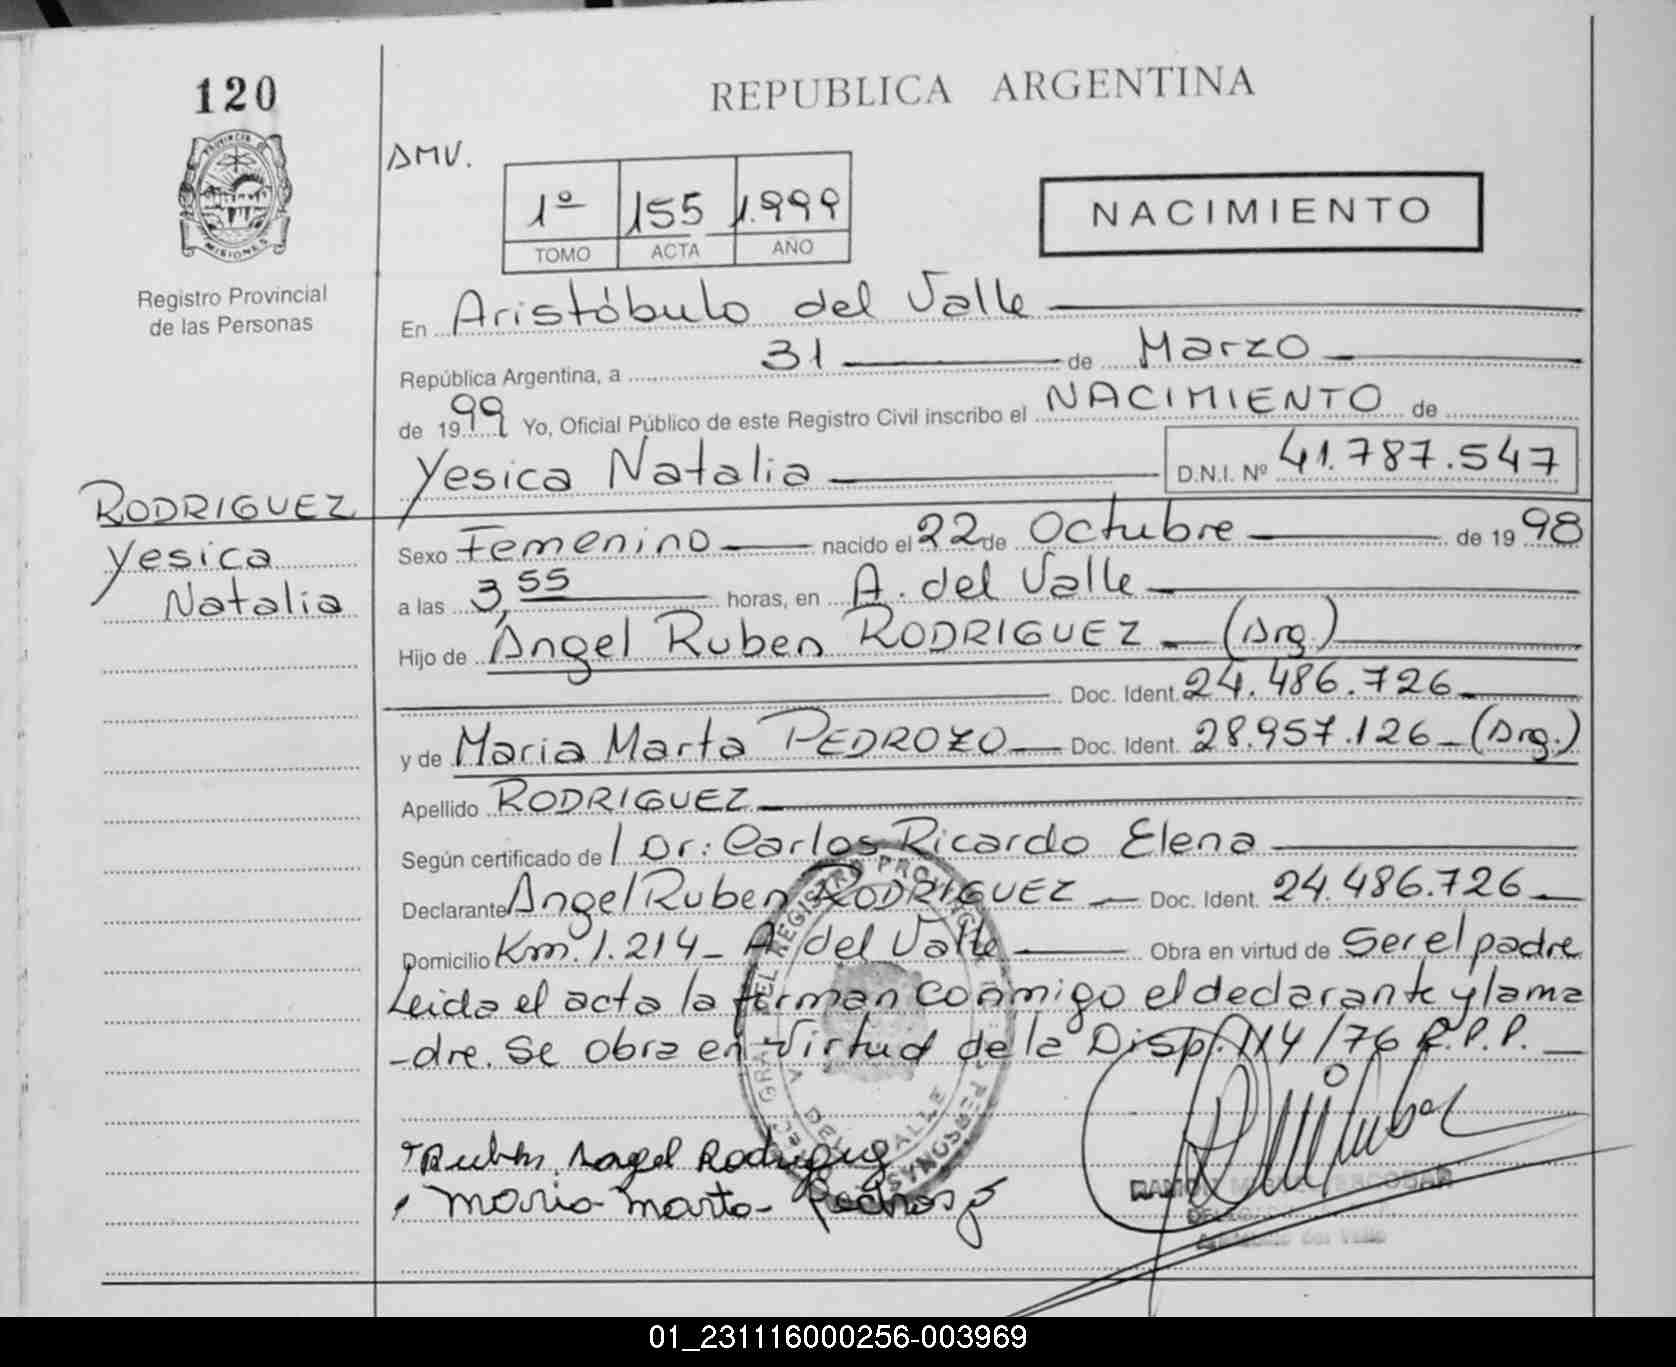 120
REPUBLICA ARGENTINA
PROVINCIA DE
MISIONES
Registro Provincial
de las Personas
DMV.
1º 155 1.999
TOMO ACTA AÑO
NACIMIENTO
En Aristóbulo del Valle
República Argentina, a 31 de Marzo
de 1999 Yo, Oficial Público de este Registro Civil inscribo el NACIMIENTO de
Yesica Natalia D.N.I. Nº 41.787.547
RODRIGUEZ
Yesica
Natalia
Sexo Femenino nacido el 22 de Octubre de 1998
a las 3,55 horas, en A. del Valle
Hijo de Ángel Ruben RODRIGUEZ (Arg.)
Doc. Ident. 24.486.726
y de Maria Marta PEDROZO Doc. Ident. 28.957.126 (Arg.)
Apellido RODRIGUEZ
Según certificado de Dr: Carlos Ricardo Elena
Declarante Angel Ruben RODRIGUEZ Doc. Ident. 24.486.726
Domicilio Km. 1.214 - A. del Valle Obra en virtud de Ser el padre
Leida el acta la firman conmigo el declarante y la ma
-dre. Se obra en virtud de la Disp. 114/76 R.P.P.
Ruben Angel Rodriguez
Maria Marta Pedrozo
RAMON ESCOBAR
del Valle
01_231116000256-003969